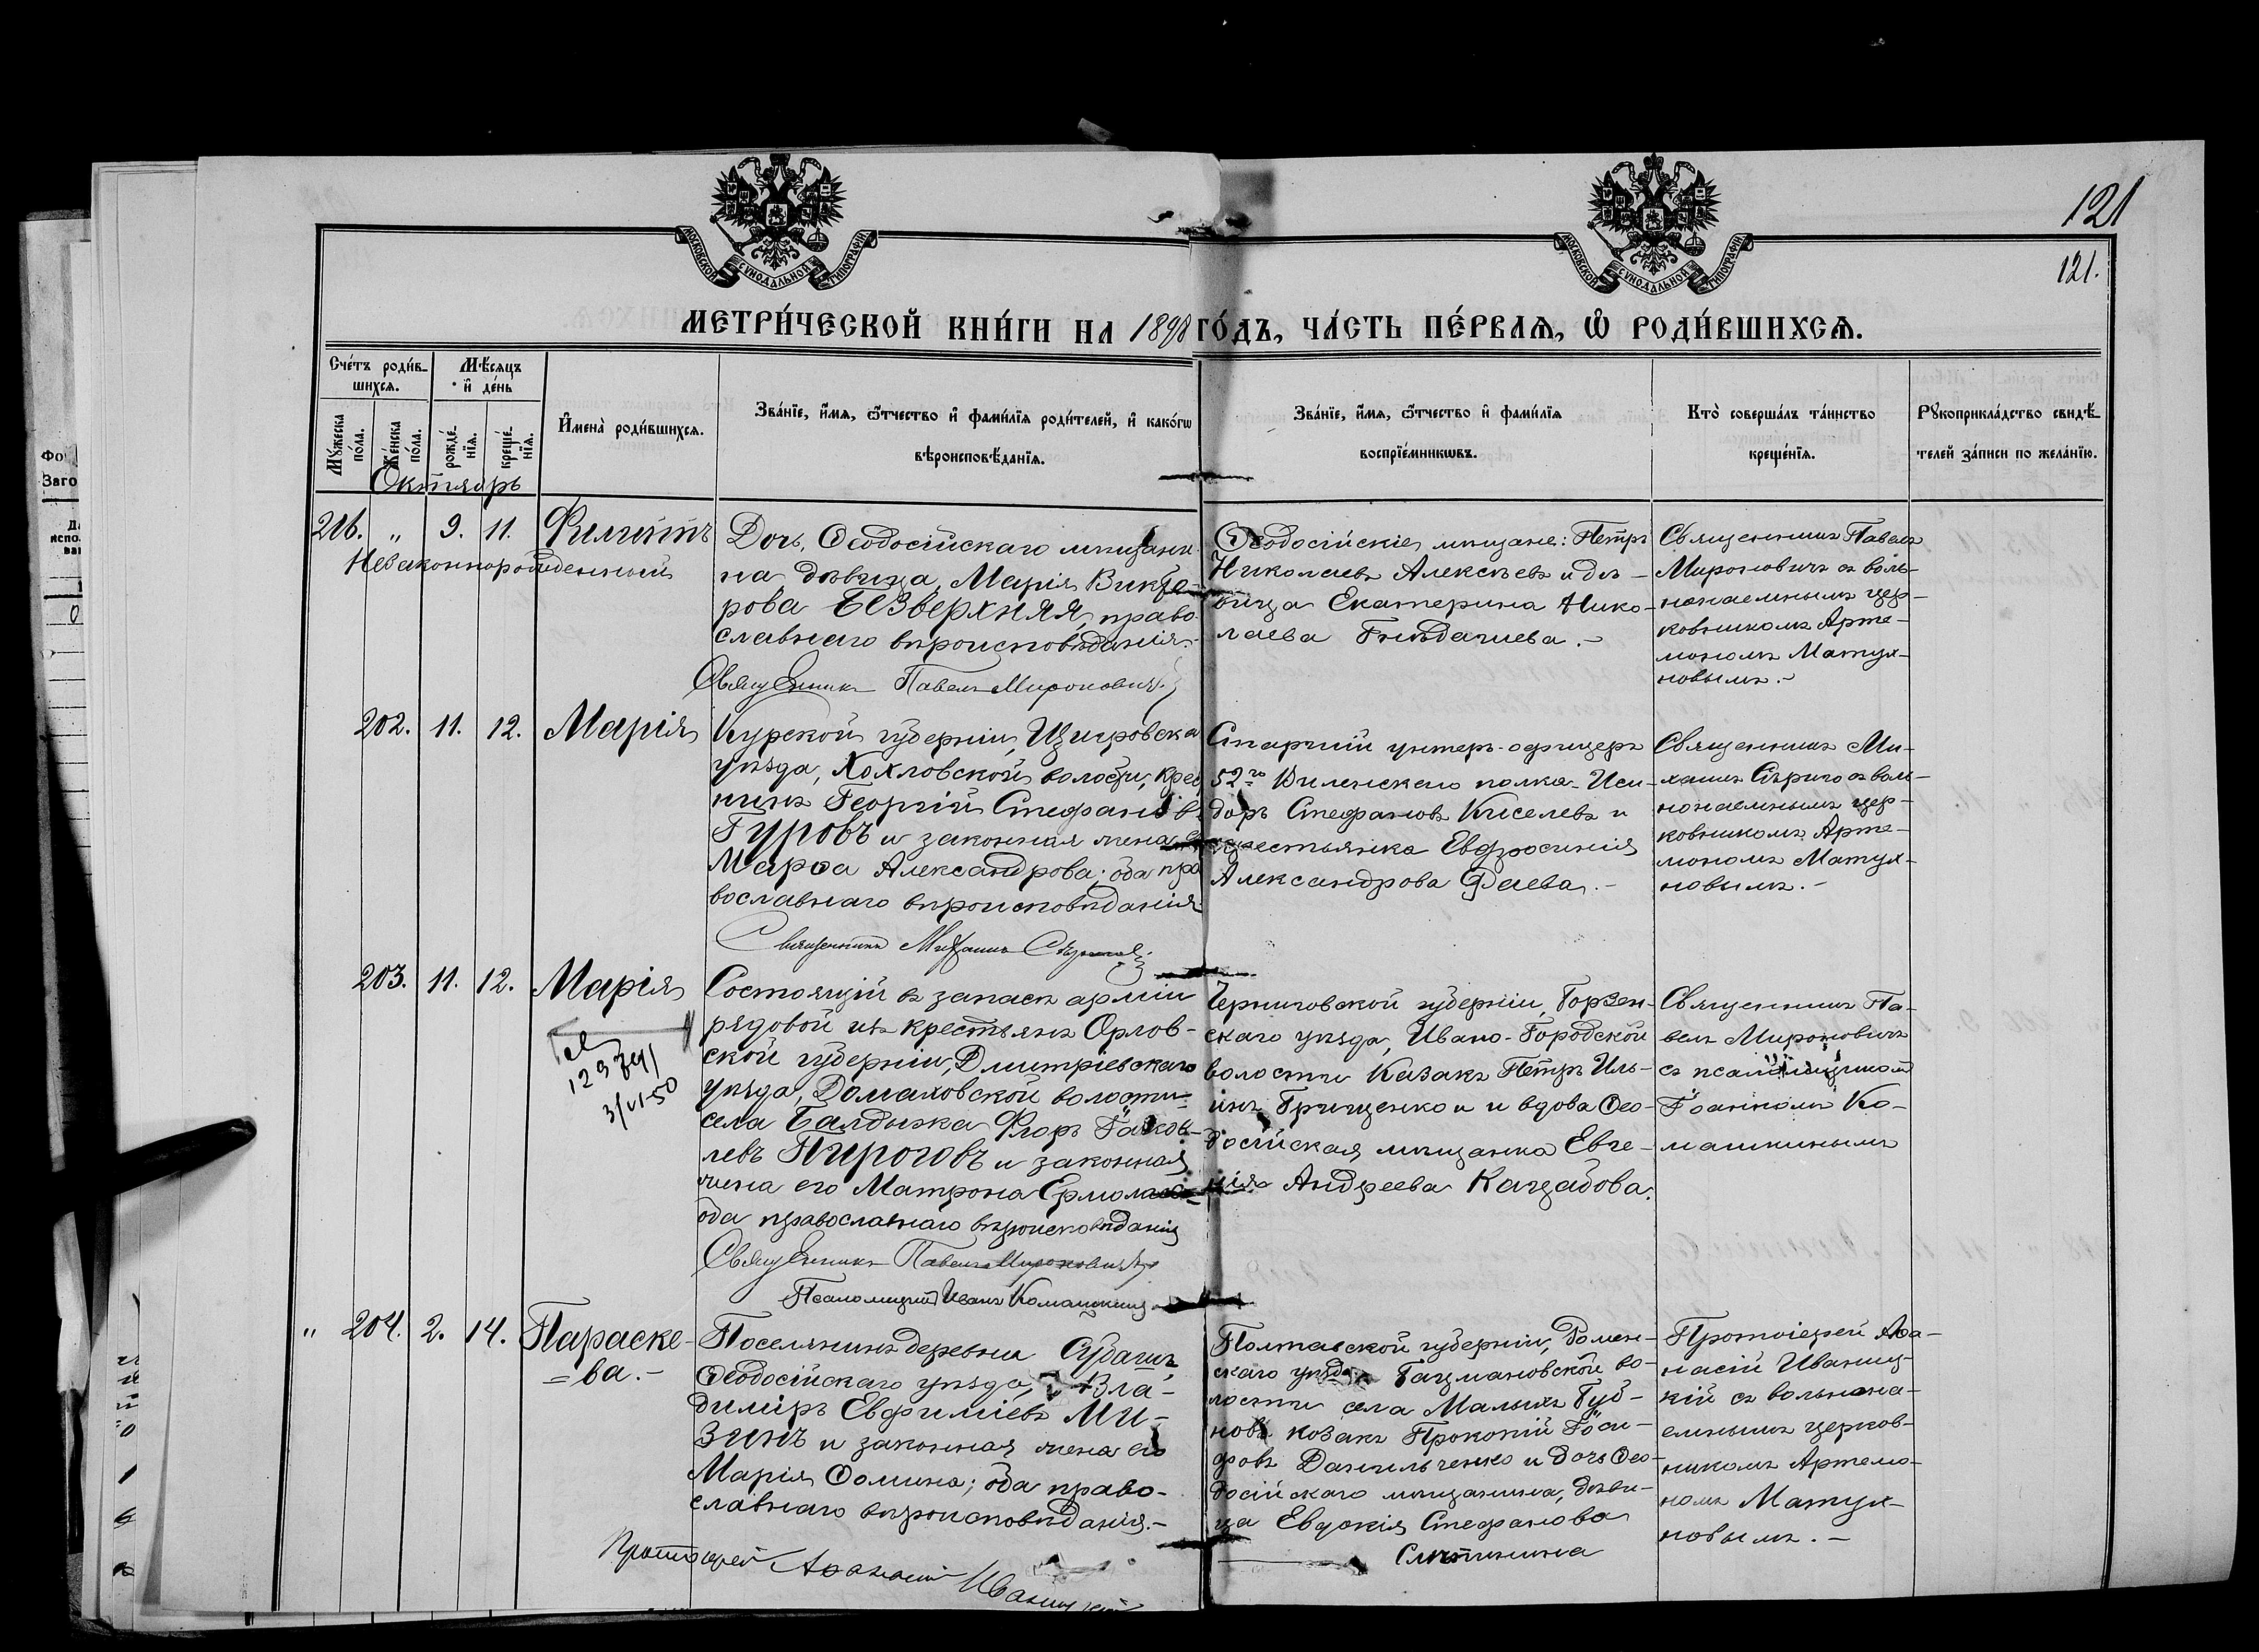 121
121.
МОСКОВСКОЙ СѴНОДАЛЬНОЙ ТИПОГРАФІИ
МОСКОВСКОЙ СѴНОДАЛЬНОЙ ТИПОГРАФІИ
МЕТРИ́ЧЕСКОЙ КНИ́ГИ НА 1898 ГО́ДЪ, ЧА́СТЬ ПЕ́РВАЯ, Ѡ҆ РОДИ́ВШИХСѦ.
Сче́тъ роди́в-
шихсѧ.
Мѣ́сѧцъ
и҆ де́нь
Мꙋ́жеска
по́ла.
Же́нска
по́ла.
рожде́-
нїѧ.
креще́-
нїѧ.
И҆мена̀ роди́вшихсѧ.
Зва́нїе, и҆́мѧ, ѻ҆́тчество и҆ фами́лїѧ роди́телей, и҆ како́гѡ
вѣроисповѣ́данїѧ.
Зва́нїе, и҆́мѧ, ѻ҆́тчество и҆ фами́лїѧ
воспрїе́мникѡвъ.
Кто̀ соверша́лъ та́инство
креще́нїѧ.
Рꙋкоприкла́дство свидѣ́-
телей за́писи по жела́нїю.
Октябрь
216. " 9. 11. Филиппъ
Незаконнорожденный
Дочь Ѳеодосійскаго мѣщани
на дѣвица Марія Викто-
рова Безверхняя, право-
славнаго вѣроисповѣданія.
Священникъ Павелъ Мироновичъ
Ѳеодосійскіе мѣщане: Петръ
Николаевъ Алексѣевъ и дѣ-
вица Екатерина Нико-
лаева Гнѣдачева.-
Священникъ Павелъ
Мироновичъ съ воль-
нонаемнымъ цер-
ковникомъ Арте-
мономъ Матух-
новымъ.-
202. 11. 12. Марія
Курской губерніи, Щигровска
уѣзда, Хохловской волости, крес
нинъ Георгій Стефановъ
Гуровъ и законная жена
Марѳа Александрова; оба пра
вославнаго вѣроисповѣданія
Священникъ Михаилъ
Старшій унтеръ-офицеръ
52го Виленскаго полка Иси-
доръ Стефановъ Киселевъ и
крестьянка Евфросинія
Александрова Фаева.-
Священникъ Ми-
хаилъ Сѣрыго съ воль-
нонаемнымъ цер-
ковникомъ Арте-
мономъ Матух-
новымъ.-
203. 11. 12. Марія
3/VI-50
Состоящій въ запасѣ арміи
рядовой изъ крестьянъ Орлов-
ской губерніи, Дмитріевскаго
уѣзда, Домаховской волости
села Балдыжа Флоръ Іаков-
левъ Пироговъ и законная
жена его Матрона Ермолаева
оба православнаго вѣроисповѣданія
Священникъ Павелъ Мироновичъ
Псаломщикъ Иванъ Комашкинъ
Черниговской губерніи, Борзен-
скаго уѣзда, Ивано-Городской
волости казакъ Петръ Иль-
инъ Грищенко и вдова Ѳео-
досійская мѣщанка Евге-
нія Андреева Кацабова.
Священникъ Па-
велъ Мироновичъ
съ псаломщикомъ
Іоанномъ Ко-
машкинымъ
" 204. 2. 14. Параске-
=ва.-
Поселянинъ деревни Судакъ
Ѳеодосійскаго уѣзда, Вла-
диміръ Евфиміевъ Ми-
зинъ и законная жена его
Марія Ѳомина; оба право-
славнаго вѣроисповѣданія.-
Протоіерей Аѳанасій Иваницкій
Полтавской губерніи, Ромен-
скаго уѣзда Гацмановской во-
лости села Малыхъ Буб-
новъ козакъ Прокопій Іоси-
фовъ Данильченко и дочь Ѳео-
досійскаго мѣщанина, дѣви-
ца Евдокія Стефанова
Смѣтинина
Протоіерей Аѳа-
насій Иваниц-
кій съ вольнона-
емнымъ церков-
никомъ Артемо-
номъ Матух-
новымъ.-